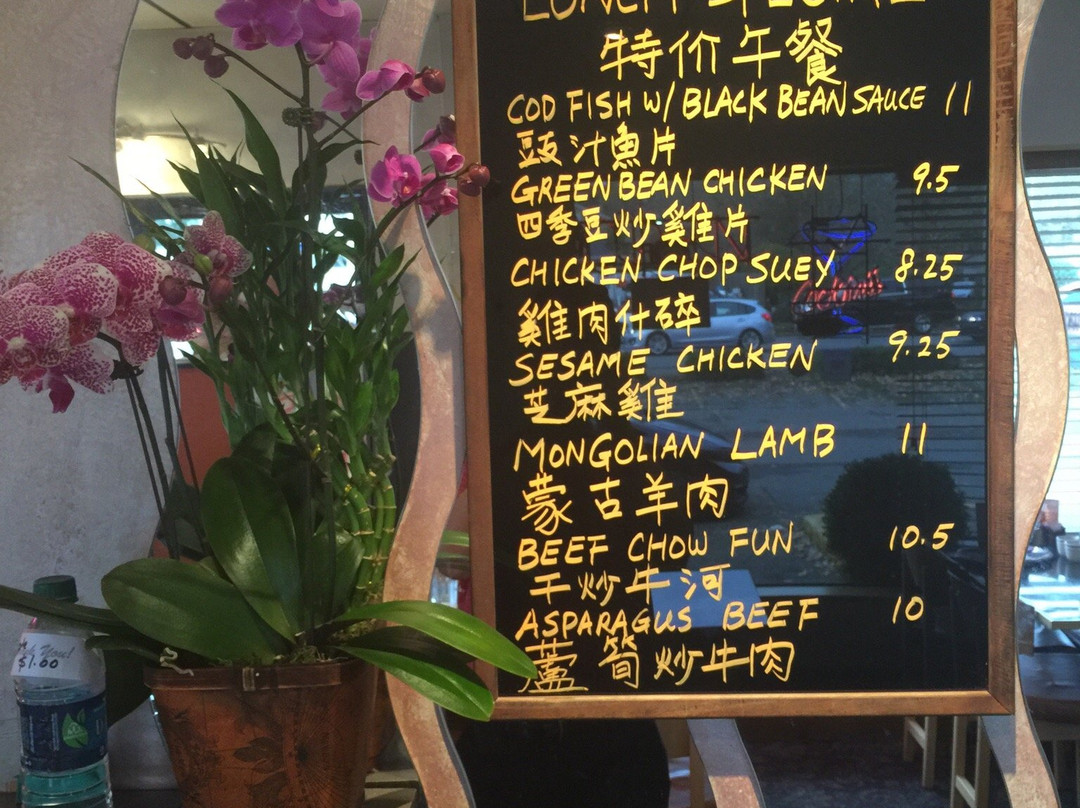 LUNCH SPECIAL
特价午餐
COD FISH W/ BLACK BEAN SAUCE 11
豉汁魚片
GREEN BEAN CHICKEN 9.5
四季豆炒雞片
CHICKEN CHOP SUEY 8.25
雞肉什碎
SESAME CHICKEN 9.25
芝麻雞
MONGOLIAN LAMB 11
蒙古羊肉
BEEF CHOW FUN 10.5
干炒牛河
ASPARAGUS BEEF 10
蘆筍炒牛肉
You!
$1.00